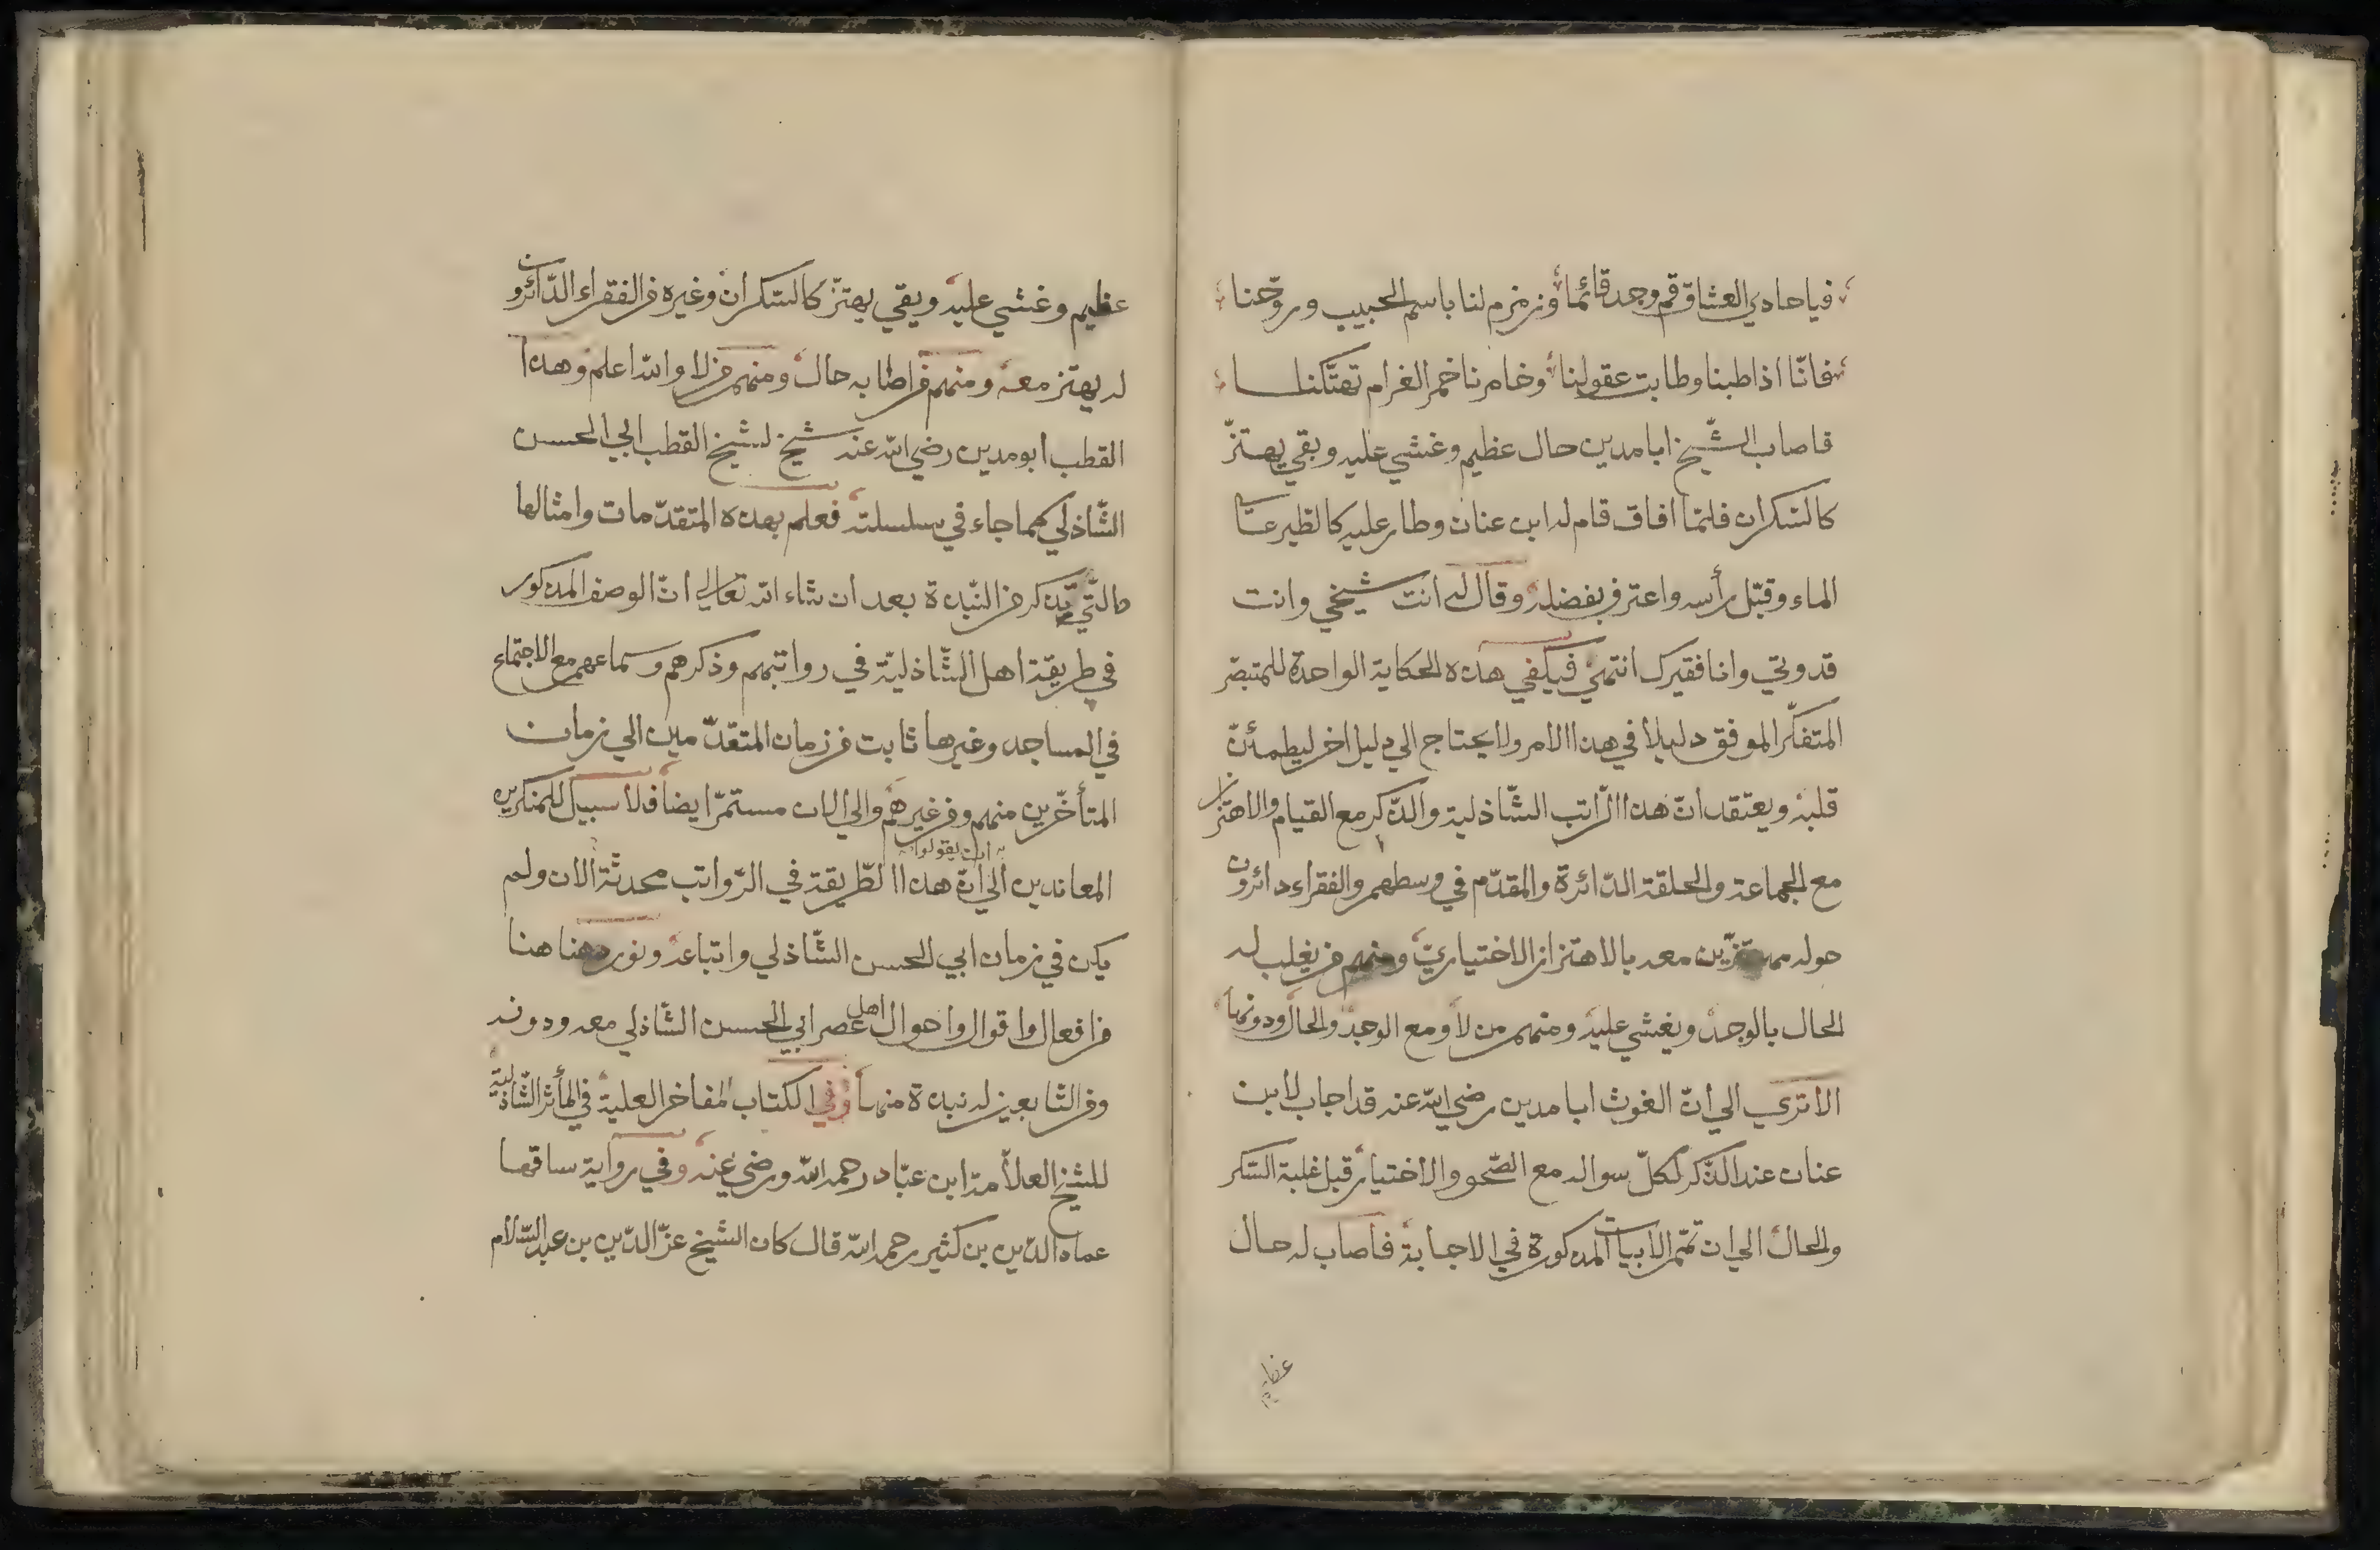 فيا حادي العشاق قم وجد قائما وزمزم لنا باسم الحبيب وروّحنا
فانّا اذا طبنا وطابت عقولنا وخامرنا خمر الغرام تهتّكنا
فاصاب الشّيخ ابا مدين حال عظيم وغشي عليه وبقي يهتزّ
كالسّكران فلمّا افاق قام له ابن عنان وطار عليه كالطير على
الماء وقبّل رأسه واعترف بفضله وقال له انت شيخي وانت
قدوتي وانا فقيرك انتهى فيكفي هذه الحكاية الواحدة للمتبصّر
المتفكّر الموفق دليلا في هذا الامر ولا يحتاج الي دليل اخر ليطمئنّ
قلبه ويعتقد انّ هذا الرّاتب الشّاذلية والذّكر مع القيام والاهتزاز
مع الجماعة والحلقة الدّائرة والمقدّم في وسطهم والفقراء دائرون
حوله مهتزّين معه بالاهتزاز الاختياريّ ومنهم من يغلب له
الحال بالوجد ويغشي عليه ومنهم من لا ومع الوجد والحال ودونهما
الا تري الي انّ الغوث ابا مدين رضي الله عنه قد اجاب لابن
عنان عند الذّكر لكلّ سواله مع الصّحو والاختيار قبل غلبة السّكر
والحال الي ان تمّم الابيات المذكورة في الاجابة فاصاب له حال
عظيم
عظيم وغشي عليه وبقي يهتزّ كالسّكران وغيره من الفقراء الدّائرون
له يهتز معه ومنهم من اصابه حال ومنهم من لا والله اعلم وهذا
القطب ابو مدين رضي الله عنه شيخ لشيخ القطب ابي الحسن
الشّاذلي كما جاء في سلسلته فعلم بهذه المتقدّمات وامثالها
مالتّي يذكر من النّبذة بعد ان شاء الله تعالي انّ الوصف المذكور
في طريقة اهل الشّاذليّة في رواتبهم وذكرهم وسماعهم مع الاجتماع
في المساجد وغيرها ثابت من زمان المتقدّمين الي زمان
المتأخّرين منهم ومن غيرهم والي الان مستمرّ ايضا فلا سبيل للمنكرين
ان يقولوا
المعاندين الي انّ هذا الطّريقة في الرّواتب محدثة الان ولم
يكن في زمان ابي الحسن الشّاذلي واتباعه ونورد هنا
من افعال واقوال واحوال اهل عصر ابي الحسن الشّاذلي معه ودونه
ومن التّابعين له نبذة منها وفي الكتاب المفاخر العلية في المأثر الشّاذلية
للشيخ العلاّمة ابن عبّاد رحمه الله ورضي عنه وفي رواية ساقها
عماد الدّين بن كثير رحمه الله قال كان الشيخ عزّ الدّين بن عبد السّلام